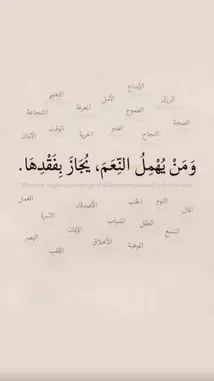 الإبداع
التعليم
الأمل
الرزق
المعرفة
الطموح
الشجاعة
الصحة
الوقت
الصبر
الحرية
النجاح
الأمان
وَمَنْ يُهْمِلُ النِّعَمَ، يُجَازَ بِفَقْدِهَا.
العمل
النوم
الحب
الأصدقاء
المال
الأسرة
الشباب
العقل
الإيمان
السمع
الأخلاق
الموهبة
البصر
القلب